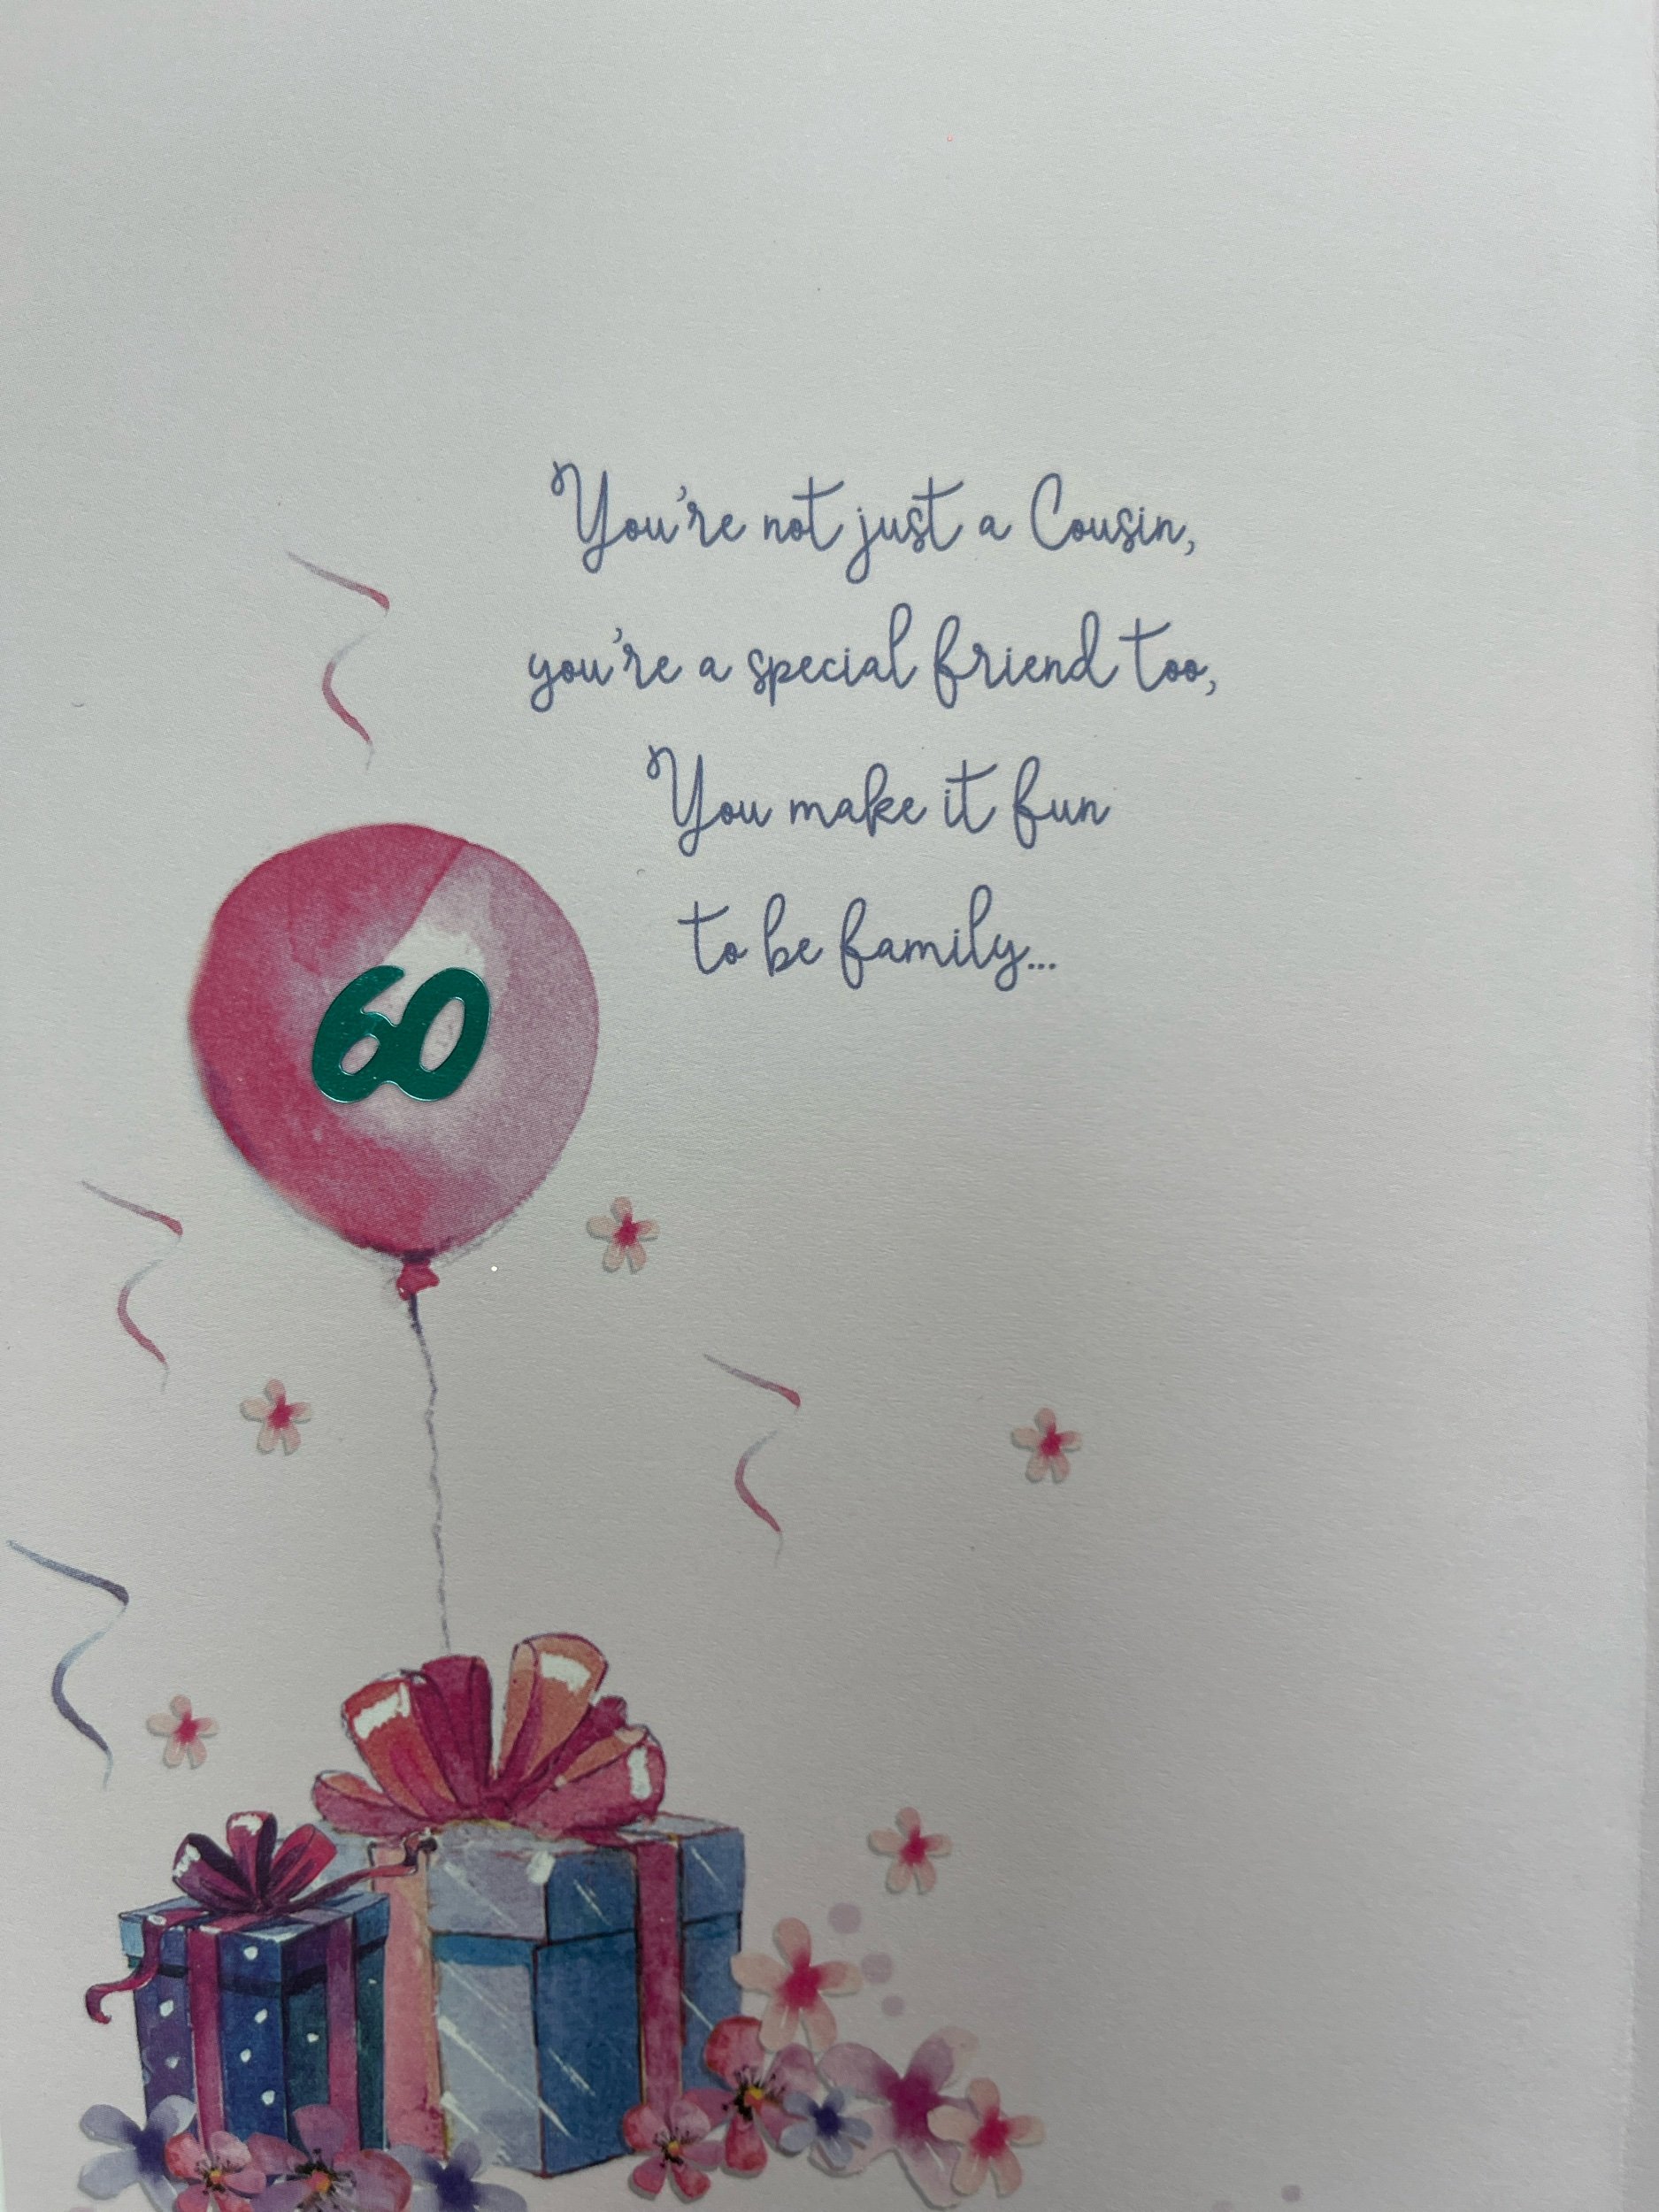 You're not just a Cousin,
you're a special friend too,
You make it fun
to be family...
60